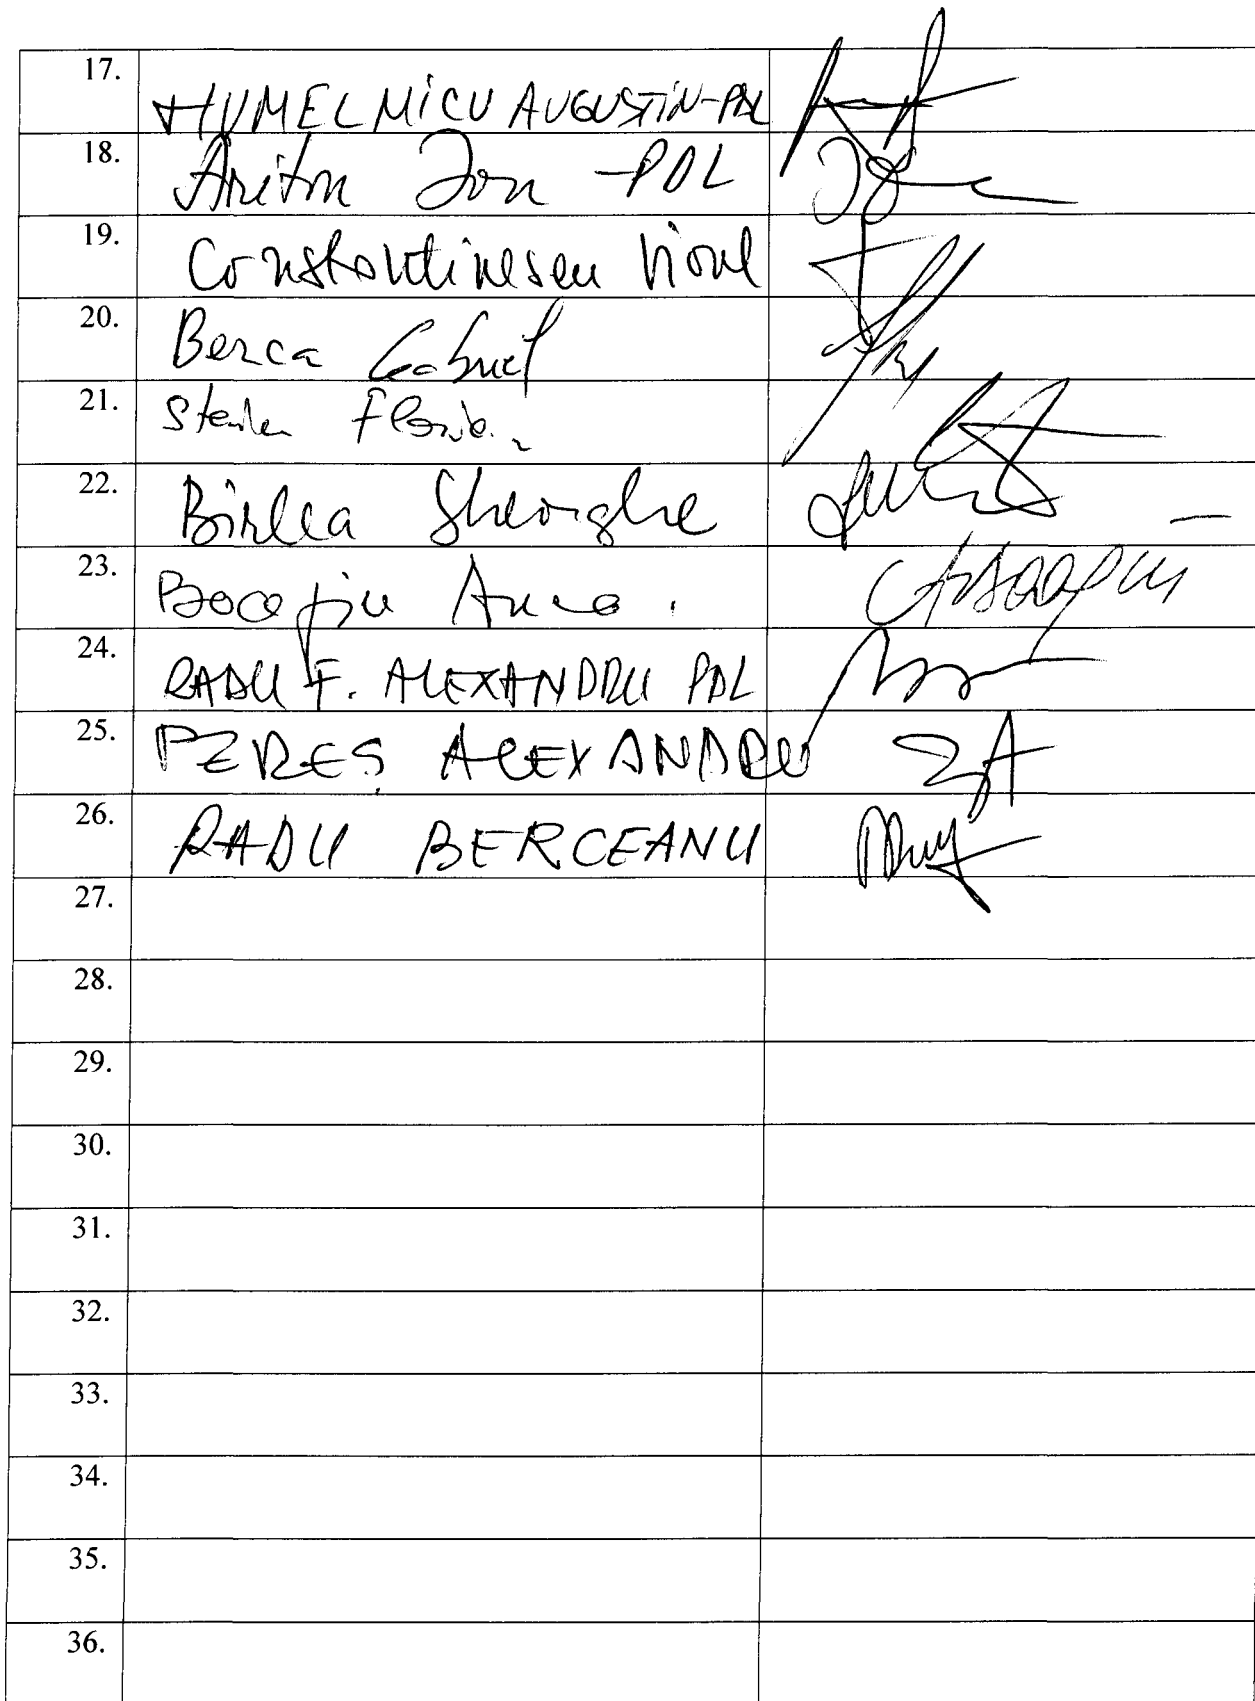 17. HUMELMICU AUGUSTIN-PDL
18. Ariton Ion -PDL
19. Constantinescu Viorel
20. Berca Gabriel
21. Florian
22. Bîrlea Gheorghe
23. Boagiu Anca.
24. RADU F. ALEXANDRU PDL
25. PEREŞ ALEXANDRU
26. RADU BERCEANU
27.
28.
29.
30.
31.
32.
33.
34.
35.
36.